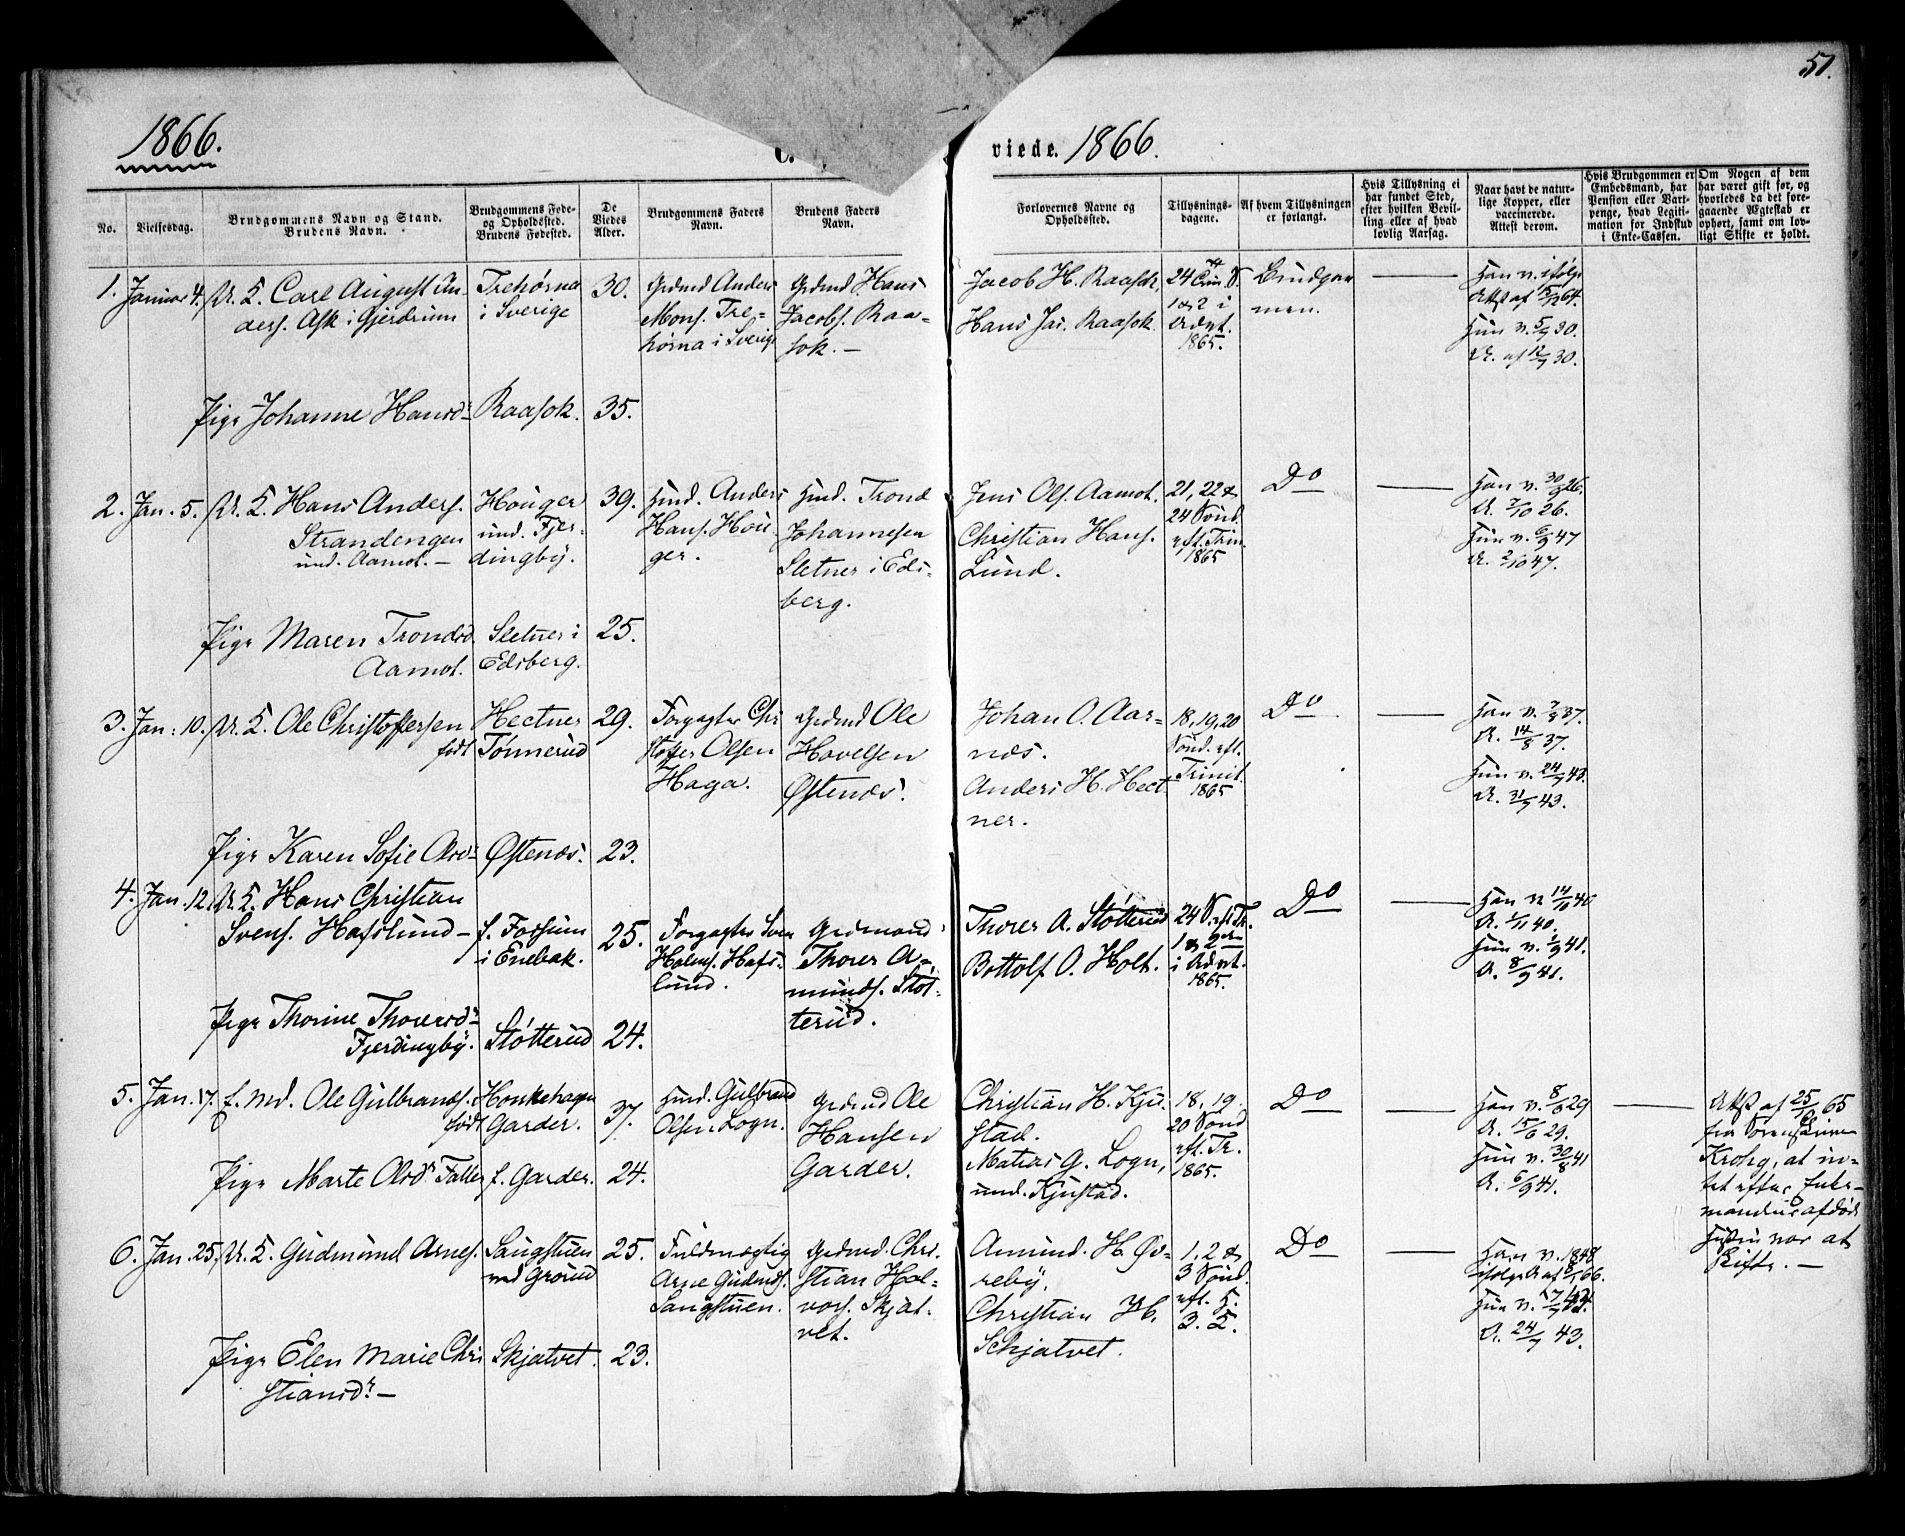 51.
1866.
viede. 1866.
No.
Vielsesdag.
Brudgommens Navn og Stand.
Brudens Navn.
Brudgommens Føde-
og Opholdssted.
Brudens Fødested.
De
Viedes
Alder.
Brudgommens Faders
Navn.
Brudens Faders
Navn.
Forlovernes Navne og
Opholdssted.
Tillysnings-
dagene.
Af hvem Tillysningen
er forlangt.
Hvis Tillysning ei
har fundet Sted,
efter hvilken Bevil-
ling eller af hvad
lovlig Aarsag.
Naar havt de natur-
lige Kopper, eller
vaccinerede.
Attest derom.
Hvis Brudgommen er
Embedsmand, har
Pension eller Vart-
penge, hvad Legiti-
mation for Indskud
i Enke-Cassen.
Om Nogen af dem
har været gift før, og
hvorledes da det fore-
gaaende Ægteskab er
ophørt, samt om lov-
ligt Skifte er holdt.
1. Januar 4. U. K. Carl August An-
ders. Ask i Gjerdrum
Trehørna
i Sverige
30.
Grdmd Anders
Mons. Tre-
hörna i Sverige
Grdmd. Hans
Jacobs. Raa-
sok. —
Jacob H. Raasok,
Hans Jac. Raasok
24
1 & 2 i
Advt.
1865.
Brudgom
men.
Han v. ifølge
Attst af 15/12 64.
Hun v. 5/7 30.
A. af 12/7 30.
Pige Johanne Hansd.
Raasok.
35.
2. Jan. 5. U. K. Hans Anders.
Strandengen
und. Aamot. —
Houger
und. Fjer-
dingby.
39.
Hmd. Anders
Hans. Hou-
ger.
Hmd. Trond
Johannesen
Sletner i Eds-
berg.
Jens Ols. Aamot.
Christian Hans.
Lund.
21, 22 &
24 Sönd.
eft. Trin.
1865
Do
Han v. 30/9 26.
A. 7/10 26.
Hun v. 6/9 47
A. 2/10 47.
Pige Maren Trondsd.
Aamot.
Sletner i
Edsberg.
25.
3. Jan. 10. U. K. Ole Christoffersen
født
Hectner
Tönnerud
29.
Forpagter Chri
stoffer Olsen
Haga.
Grdmd Ole
Hovelsen
Østenæs.
Johan O. Aar-
næs.
Anders H. Hect
ner.
18, 19, 20
Sönd. eft.
Trinit.
1865
Do
Han v. 7/8 37.
A. 14/8 37.
Hun v. 24/7 43.
A. 31/7 43.
Pige Karen Sofie Olsd.
Østenæs.
23.
4. Jan. 12. U. K. Hans Christian
Svens. Hafslund —
f. Fossum
i Enebak.
25.
Forpagter Sven
Hafs-
lund.
Grdmand
Thorer A-
munds. Støt-
terud.
Thorer A. Støtterud
Bottolf O. Holt.
24 S. eft Tr.
1 & 2den
i Advt.
1865.
Do
Han v. 14/10 40
A. 1/11 40.
Hun v. 1/9 41.
A. 8/9 41.
Pige Thorine Thorersd.
Fjerdingby.
Støtterud
24.
5. Jan. 17. f. Md. Ole Gulbrands.
født
Honkehagen
Garder.
37.
Hmd. Gulbrand
Olsen Logn.
Grdmd Ole
Hansen
Garder.
Christian H. Kju-
stad.
Mathis G. Logn,
und. Kjustad.
18, 19.
20 Sönd
eft. Tr.
1865.
Do
Han v. 8/6 29
A. 15/6 29.
Hun v. 30/8 41
A. 6/9 41.
Attst af 25/ 65
fra Sorenskriver
Krohg, at in-
tet efter Enke-
mandens afdøde
Hustru var at
skifte. —
Pige Marte Olsdr
f. Garder.
24.
6. Jan. 25. U. K. Gudmund Arnes.
Sangstuen
ved Grorud
25.
Fuldmægtig
Arne Gudmds.
Sangstuen.
Grdmd. Chri-
stian Hal-
vors. Skjat-
vet.
Amund. H. Øv-
reby.
Christian H.
Schjatvet.
1, 2 &
3 Sönd.
eft. H.
3. K.
Do
Han v. 1848
ifølge A af 8/1 66.
Hun v. 17/7 43.
A. 24/7 43.
Pige Elen Marie Chri
stiansdr. —
Skjatvet.
23.